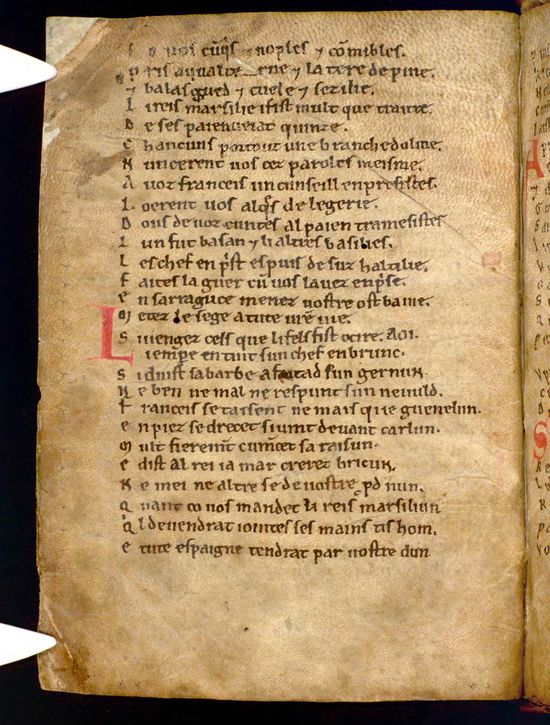 o vos cūq̄s ⁊ noples ⁊ cōmibles.
P ris ai ualterne ⁊ la tere de pine.
⁊ balasgued ⁊ tuele ⁊ sezilie.
L i reis marsilie i fist mult que traitre.
D e ses paiens ueiat quinze.
C hancuns portout une branche doliue.
N uncerent uos cez paroles meisme.
A uoz franceis un cunseill en presistes.
L oerent uos alq̄s de legerie.
D ous de uoz cuntes al paien tramesistes
L un fut basan ⁊ li altres basilies.
L es chef en p̄st es puis desuz haltilie.
F aites la guer cū uos lauez enp̄se.
E n sarraguce menez uostre ost banie.
M etez le sege a tute ur̄e uie.
S i uengez cels que li fels fist ocire. AOI.
L i emp̄e en tint sun chef enbrunc.
S i duist sa barbe afaitad sun gernun.
N e ben ne mal ne respunt sun neuuld.
F ranceis se taisent ne mais que guenelun.
E n piez se drecet si uint deuant carlun.
M ult fierem̄t cumēcet sa raisun.
E dist al rei ia mar crerez bricun.
N e mei ne altre se de uostre p̄d nun.
Q uant co uos mandet li reis marsiliun
Q̇l deuendrat iointes ses mains tis hom.
E tute espaigne tendrat par uostre dun